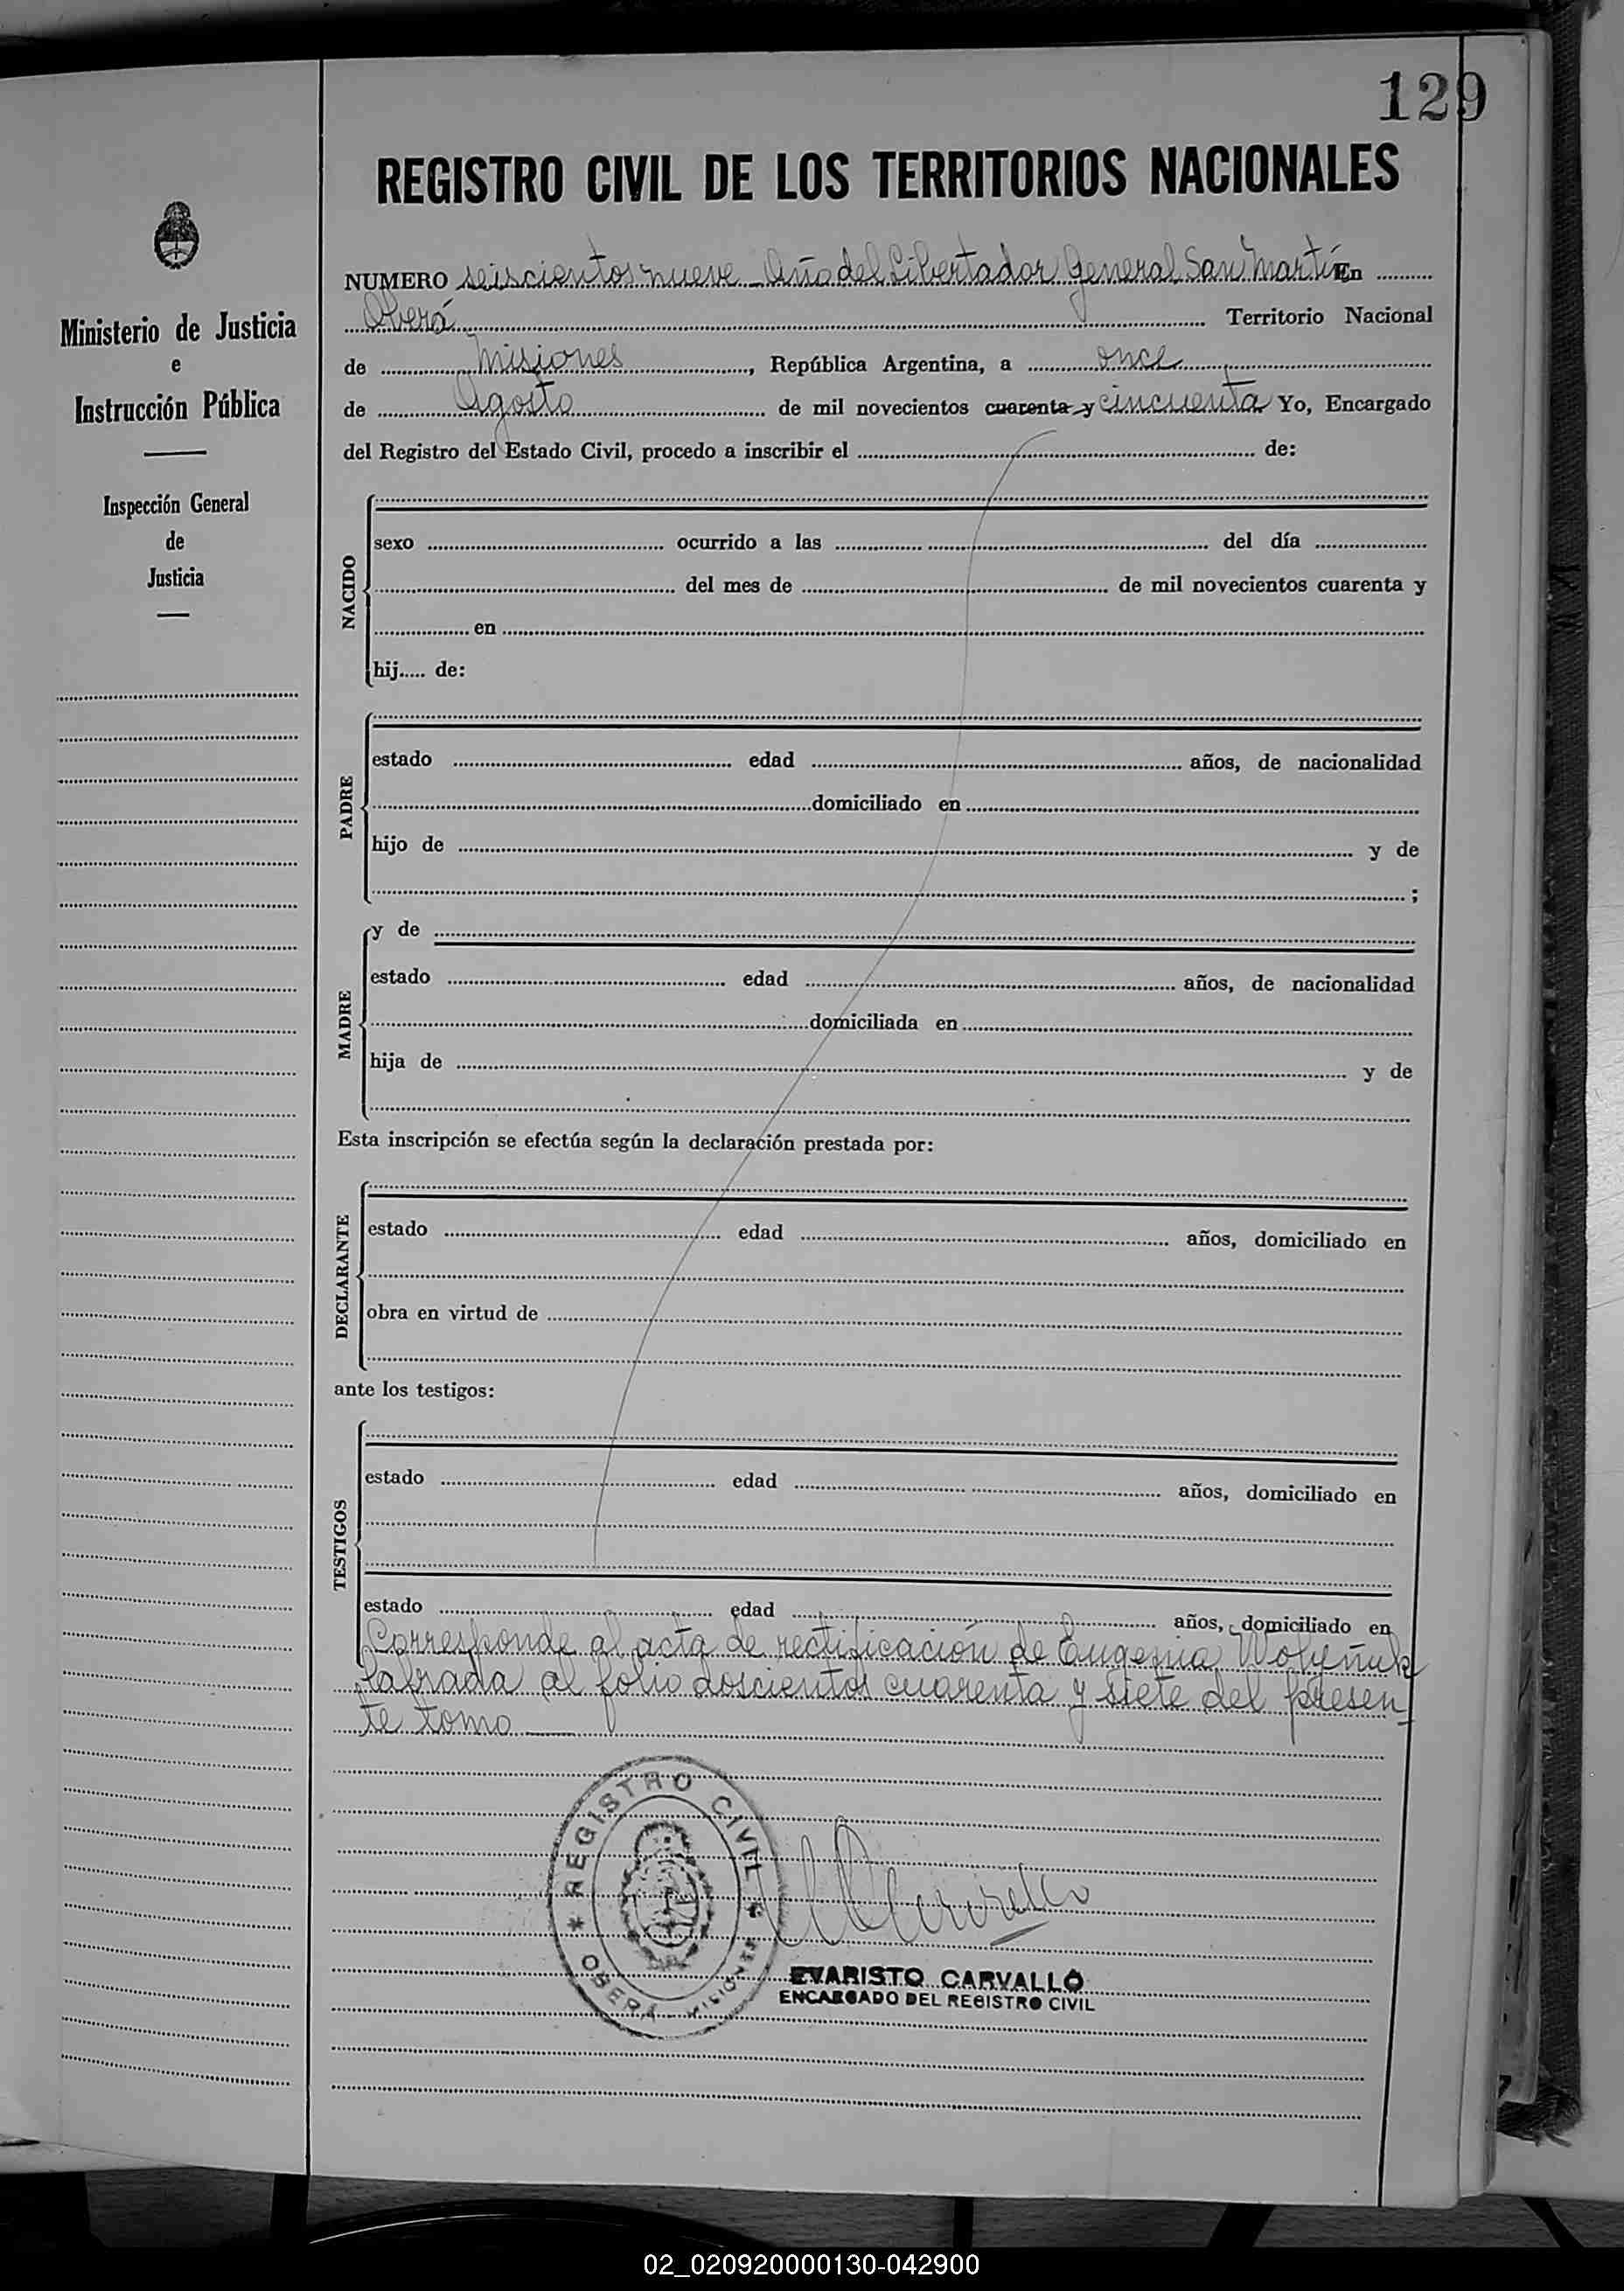 129
REGISTRO CIVIL DE LOS TERRITORIOS NACIONALES
Ministerio de Justicia
e
Instrucción Pública
Inspección General
de
Justicia
NUMERO seiscientos nueve - Año del Libertador General San Martín En
Oberá Territorio Nacional
de Misiones, República Argentina, a once
de Agosto de mil novecientos cuarenta y cincuenta Yo, Encargado
del Registro del Estado Civil, procedo a inscribir el de:
NACIDO
sexo ocurrido a las del día
del mes de de mil novecientos cuarenta y
en
hij..... de:
PADRE
estado edad años, de nacionalidad
domiciliado en
hijo de y de
;
MADRE
y de
estado edad años, de nacionalidad
domiciliada en
hija de y de
Esta inscripción se efectúa según la declaración prestada por:
DECLARANTE
estado edad años, domiciliado en
obra en virtud de
ante los testigos:
TESTIGOS
estado edad años, domiciliado en
estado edad años, domiciliado en
Corresponde al acta de rectificación de Eugenia Wolyñuk
labrada al folio doscientos cuarenta y siete del presen-
te tomo
REGISTRO CIVIL
* OBERÁ - MISIONES *
EVARISTO CARVALLO
ENCARGADO DEL REGISTRO CIVIL
02_020920000130-042900